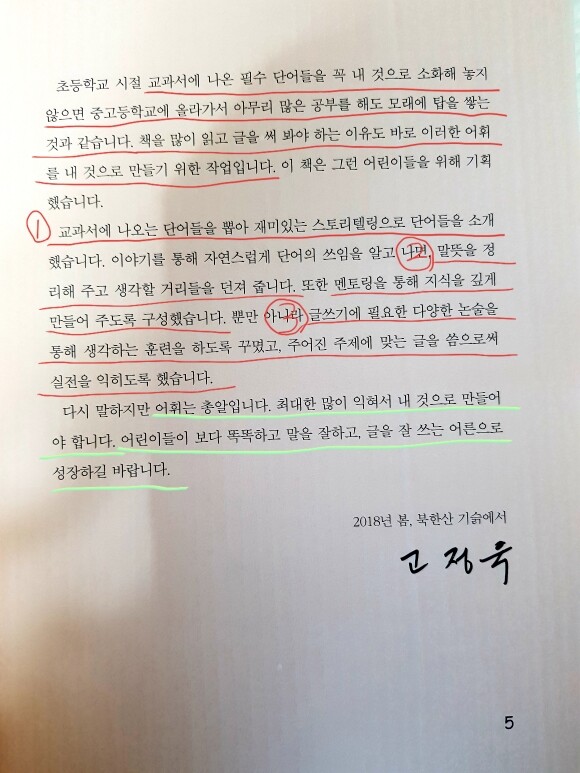 초등학교 시절 교과서에 나온 필수 단어들을 꼭 내 것으로 소화해 놓지
않으면 중고등학교에 올라가서 아무리 많은 공부를 해도 모래에 탑을 쌓는
것과 같습니다. 책을 많이 읽고 글을 써 봐야 하는 이유도 바로 이러한 어휘
를 내 것으로 만들기 위한 작업입니다. 이 책은 그런 어린이들을 위해 기획
했습니다.
1 교과서에 나오는 단어들을 뽑아 재미있는 스토리텔링으로 단어들을 소개
했습니다. 이야기를 통해 자연스럽게 단어의 쓰임을 알고 나면, 말뜻을 정
리해 주고 생각할 거리들을 던져 줍니다. 또한 멘토링을 통해 지식을 깊게
만들어 주도록 구성했습니다. 뿐만 아니라 글쓰기에 필요한 다양한 논술을
통해 생각하는 훈련을 하도록 꾸몄고, 주어진 주제에 맞는 글을 씀으로써
실전을 익히도록 했습니다.
다시 말하지만 어휘는 총알입니다. 최대한 많이 익혀서 내 것으로 만들어
야 합니다. 어린이들이 보다 똑똑하고 말을 잘하고, 글을 잘 쓰는 어른으로
성장하길 바랍니다.
2018년 봄, 북한산 기슭에서
고정욱
5